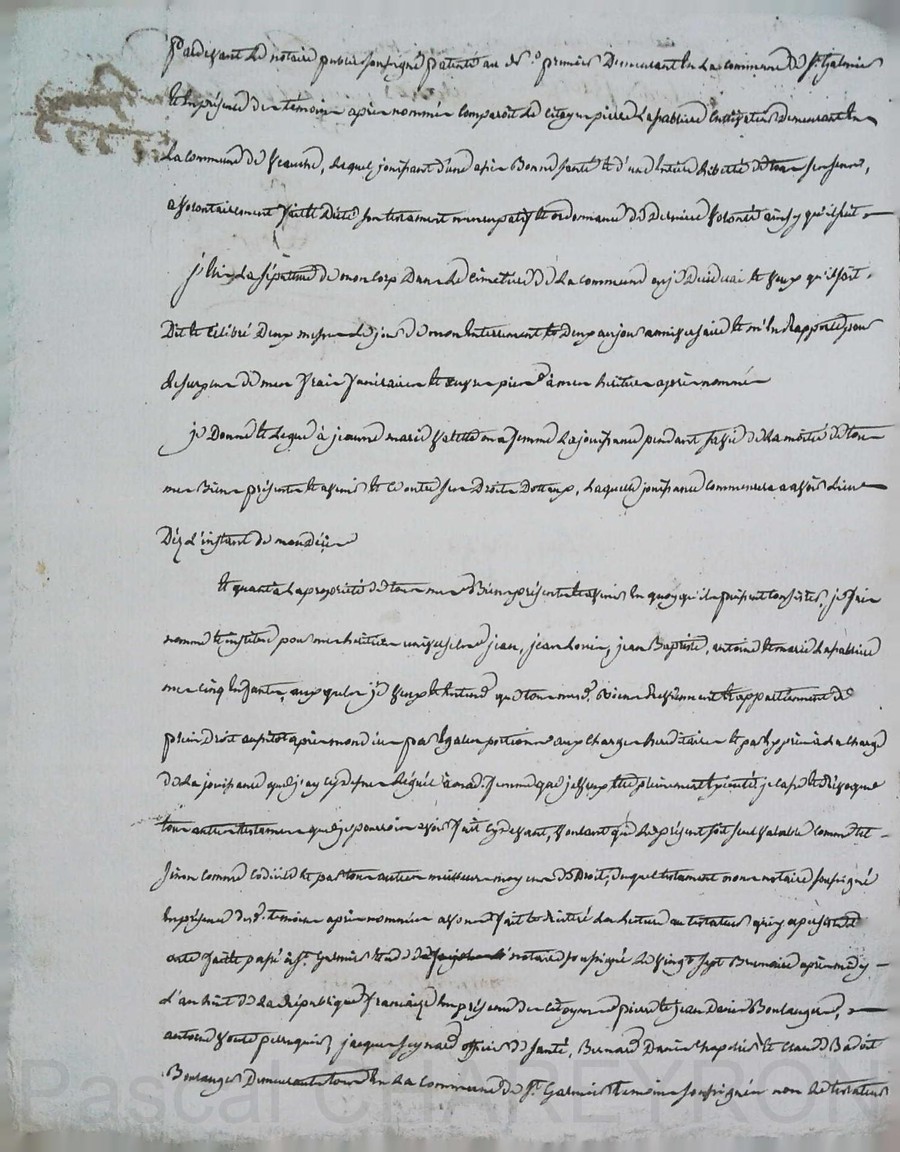 Pardevant Le notaire public soussigné patenté au premier Demeurant En La commune De St. Galmier
Et En présence Des témoins après nommés comparoit Le Citoyen pierre Lapabliere Cultivateur Demeurant En
La commune De Veauche, Lequel jouissant d'une Bonne santé Et d'une Entiere Liberté De tous ses sens,
a volontairement fait Et Dicté son testament nuncupatif Et ordonnance De Derniere volonté ainsy qu'il suit
j'Elis La sépulture De mon Corp Dans Le Cimetiere De La commune ou je Decederai Et veux qu'il soit
Dit Et Célébré Deux messes Le jour De mon Enterrement Et Deux au jour anniversaire Et m'En Rapporte pour
Le surplus De mes frais funéraires Et œuvres pies à mes heritiers après nommés
je Donne Et Legue à jeanne marie Valette ma femme La jouissance pendant sa vie De La moitié De tous
mes Biens présents Et avenir Et Ce outre ses Droits Dotaux, Laquelle jouissance Commencera a avoir Lieu
Dèz L'instant De mon Décès
Et quant à La propriété De tous mes Biens présents Et avenir En quoy qu'ils puissent Consister, je fais
nomme Et institue pour mes heritiers universels jean, jean Louis, jean Baptiste, antoine Et marie Lapabliere
mes Cinq Enfants, auxquels je veux Et Entend que tous mesd. Biens Reviennent Et appartiennent De
plein Droit aussitot après mon Décès par Egales portions aux Charges héréditaires Et par Exprès à La Charge
De La jouissance que j'ay Cy Dessus Léguée à mad. femme que je veux Etre pleinement Exécuté, je Casse Et Révoque
tous autres testaments que je pourrois avoir fait Cy devant, voulant que Le présent soit seul valable Comme tel
sinon comme Codicile Et par tous autres meilleurs moyens De Droit, Duquel testament nous notaire soussigné
En présence Desd. témoins après nommés avons fait Et Réitéré La Lecture au testateur qui y a persisté
acte fait Et passé à St. Galmier Etude Du notaire soussigné Le vingt sept Brumaire après midy
L'an huit De La République française En présence Des Citoyens pierre Et jean Denis Boulangers,
antoine perruquier, jacques officier De Santé, Bernard Denis Chapelier Et Claude Badoit
Boulanger Demeurants tous En La Commune De St. Galmier témoins soussignés non Le testateur
Pascal CHAREYRON